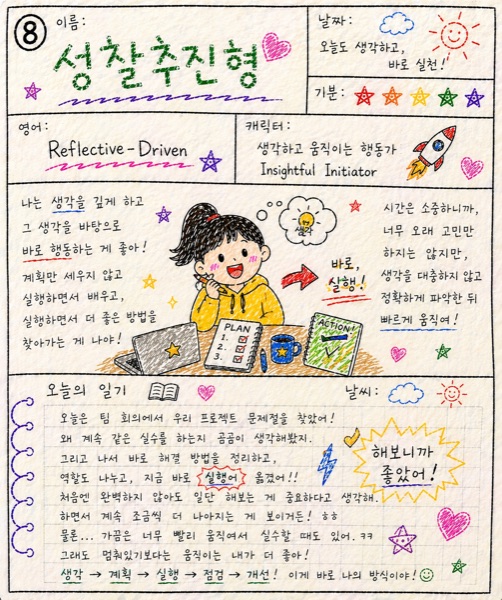 8
이름:
성찰추진형
날짜:
오늘도 생각하고,
바로 실천!
기분:
영어:
Reflective-Driven
캐릭터:
생각하고 움직이는 행동가
Insightful Initiator
나는 생각을 깊게 하고
그 생각을 바탕으로
바로 행동하는 게 좋아!
계획만 세우지 않고
실행하면서 배우고,
실행하면서 더 좋은 방법을
찾아가는 게 나야!
생각
바로,
실행!
PLAN
1.
2.
3.
ACTION!
시간은 소중하니까,
너무 오래 고민만
하지는 않지만,
생각을 대충하지 않고
정확하게 파악한 뒤
빠르게 움직여!
오늘의 일기
날씨:
오늘은 팀 회의에서 우리 프로젝트 문제점을 찾았어!
왜 계속 같은 실수를 하는지 곰곰이 생각해봤지.
그리고 나서 바로 해결 방법을 정리하고,
역할도 나누고, 지금 바로 실행에 옮겼어!!
처음엔 완벽하지 않아도 일단 해보는 게 중요하다고 생각해.
하면서 계속 조금씩 더 나아지는 게 보이거든! ㅎㅎ
물론... 가끔은 너무 빨리 움직여서 실수할 때도 있어. ㅋㅋ
그래도 멈춰있기보다는 움직이는 내가 더 좋아!
생각 → 계획 → 실행 → 점검 → 개선! 이게 바로 나의 방식이야!
해보니까
좋았어!